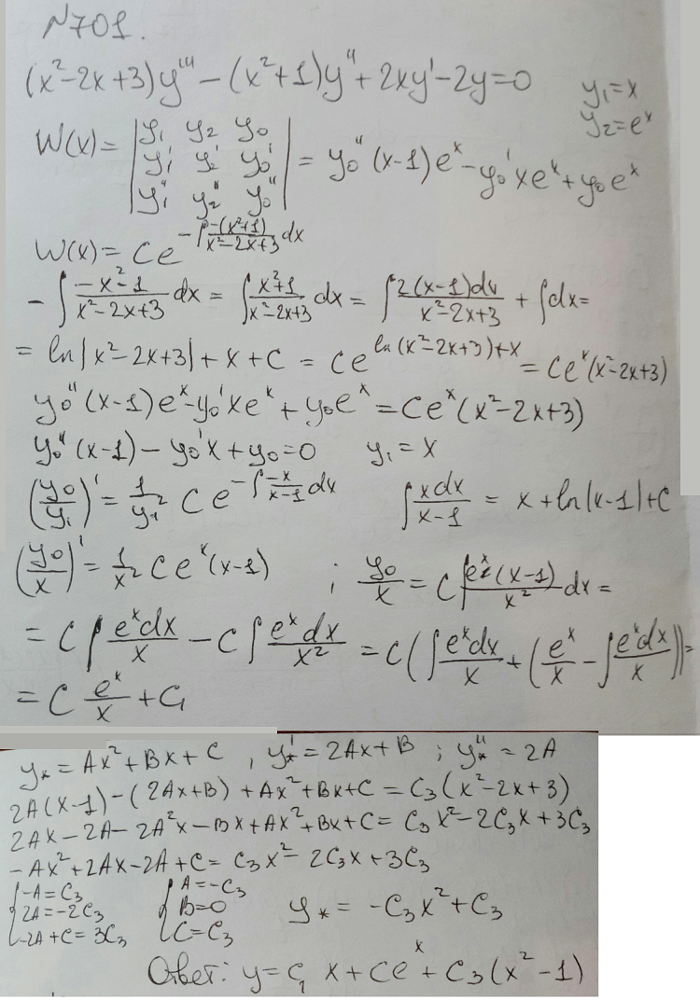 N701.
(x²-2x+3)y''' - (x²+1)y'' + 2xy' - 2y = 0    y₁=x
y₂=eˣ
W(x) = |y₁ y₂ y₀; y₁' y₂' y₀'; y₁'' y₂'' y₀''| = y₀''(x-1)eˣ - y₀'xeˣ + y₀eˣ
W(x) = Ce^(-∫ -(x²+1)/(x²-2x+3) dx)
-∫ (-x²-1)/(x²-2x+3) dx = ∫ (x²+1)/(x²-2x+3) dx = ∫ 2(x-1)dx/(x²-2x+3) + ∫dx =
= ln|x²-2x+3| + x + C = Ce^(ln(x²-2x+3)+x) = Ceˣ(x²-2x+3)
y₀''(x-1)eˣ - y₀'xeˣ + y₀eˣ = Ceˣ(x²-2x+3)
y₀''(x-1) - y₀'x + y₀ = 0    y₁ = x
(y₀/y₁)' = 1/y₁² Ce^(-∫ -x/(x-1) dx)    ∫ xdx/(x-1) = x + ln|x-1| + C
(y₀/x)' = 1/x² Ceˣ(x-1) ; y₀/x = C∫ eˣ(x-1)/x² dx =
= C∫ eˣdx/x - C∫ eˣdx/x² = C(∫ eˣdx/x + (eˣ/x - ∫ eˣdx/x)) =
= C eˣ/x + C₁
y* = Ax² + Bx + C , y*' = 2Ax + B ; y*'' = 2A
2A(x-1) - (2Ax+B) + Ax² + Bx + C = C₃(x²-2x+3)
2Ax - 2A - 2A²x - Bx + Ax² + Bx + C = C₃x² - 2C₃x + 3C₃
-Ax² + 2Ax - 2A + C = C₃x² - 2C₃x + 3C₃
{-A = C₃    {A = -C₃
{2A = -2C₃    {B = 0    y* = -C₃x² + C₃
{-2A + C = 3C₃    {C = C₃
Ответ: y = C₁x + Ceˣ + C₃(x²-1)